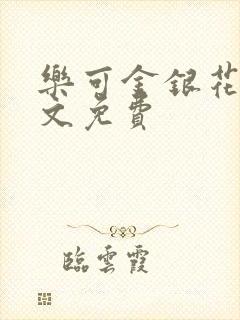 樂可金銀花
文免費
臨雲霞